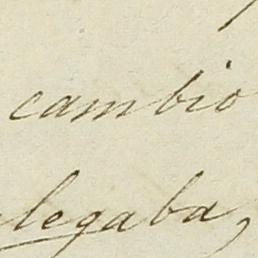 cambio
legaba,